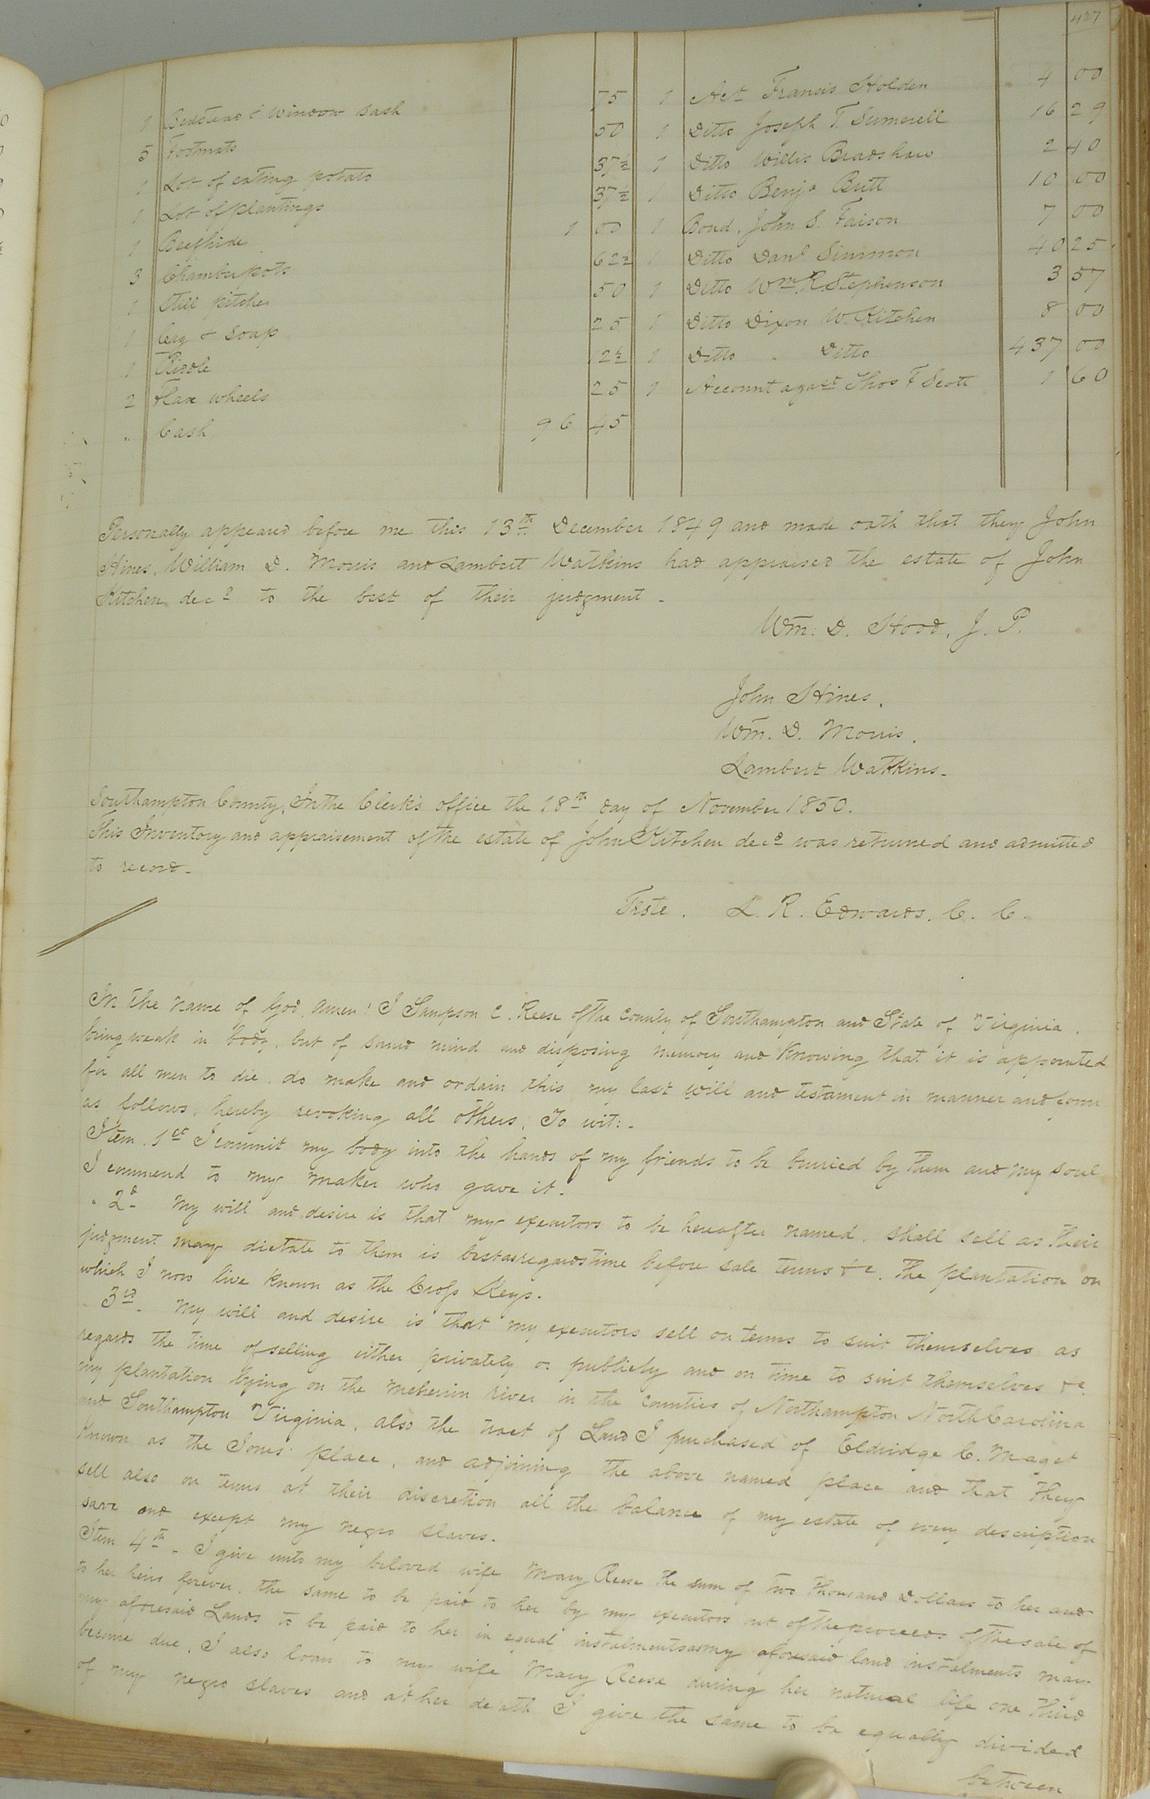 427
1 Bedstead & window sash 75
5 Footmats 50
1 Lot of eating potato 37½
1 Lot of plantings 37½
1 Beefhide 1 00
3 Chamberpots 62½
1 Still pitcher 50
1 Keg & soap 25
1 Riddle 12½
2 Flax wheels 25
" Cash 96 45
1 Act Francis Holden 4 00
1 Ditto Joseph T. Sumerell 16 29
1 Ditto Willis Bradshaw 2 40
1 Ditto Benja Britt 10 00
1 Bond John S. Faison 7 00
1 Ditto Danl Simmon 40 25
1 Ditto Wm. R. Stephenson 3 57
1 Ditto Dixon W. Kitchen 8 00
1 Ditto " Ditto 437 00
1 Account agast Thos F Scott 1 60
Personally appeared before me this 13th December 1849 and made oath that they John
Hines, William D. Morris and Lambert Watkins had appraised the estate of John
Kitchen decd to the best of their judgment.
Wm. D. Hood, J. P.
John Hines.
Wm. D. Morris.
Lambert Watkins.
Southampton County, In the Clerk's office the 18th day of November 1850.
This Inventory and appraisement of the estate of John Kitchen decd was returned and admitted
to record.
Teste. L. R. Edwards. C. C.
In the name of God, amen! I Sampson C. Reese of the County of Southampton and State of Virginia.
being weak in body, but of sound mind and disposing memory and knowing that it is appointed
for all men to die, do make and ordain this my last will and testament in manner and form
as follows, hereby revoking all others, To wit:
Item. 1st I commit my body into the hands of my friends to be burried by them and my soul
I commend to my maker who gave it.
" 2d My will and desire is that my executors to be hereafter named, shall sell as their
judgment may dictate to them is best as regards time before sale terms &c. the plantation on
which I now live known as the Cross Keys.
" 3rd My will and desire is that my executors sell on terms to suit themselves as
regards the time of selling either privately or publicly and on time to suit themselves &c.
my plantation lying on the Meherrin river in the Counties of Northampton North Carolina
and Southampton Virginia, also the tract of Land I purchased of Eldridge C. Maget
known as the Jones' place, and adjoining the above named place and that they
sell also on terms at their discretion all the balance of my estate of every description
save and except my negro slaves.
Item 4th I give unto my beloved wife Mary Reese the sum of two thousand Dollars to her and
to her heirs forever, the same to be paid to her by my executors out of the proceeds of the sale of
my aforesaid Lands to be paid to her in equal instalments as my aforesaid land instalments may
become due, I also loan to my wife Mary Reese during her natural life one third
of my negro slaves and at her death I give the same to be equally divided
between